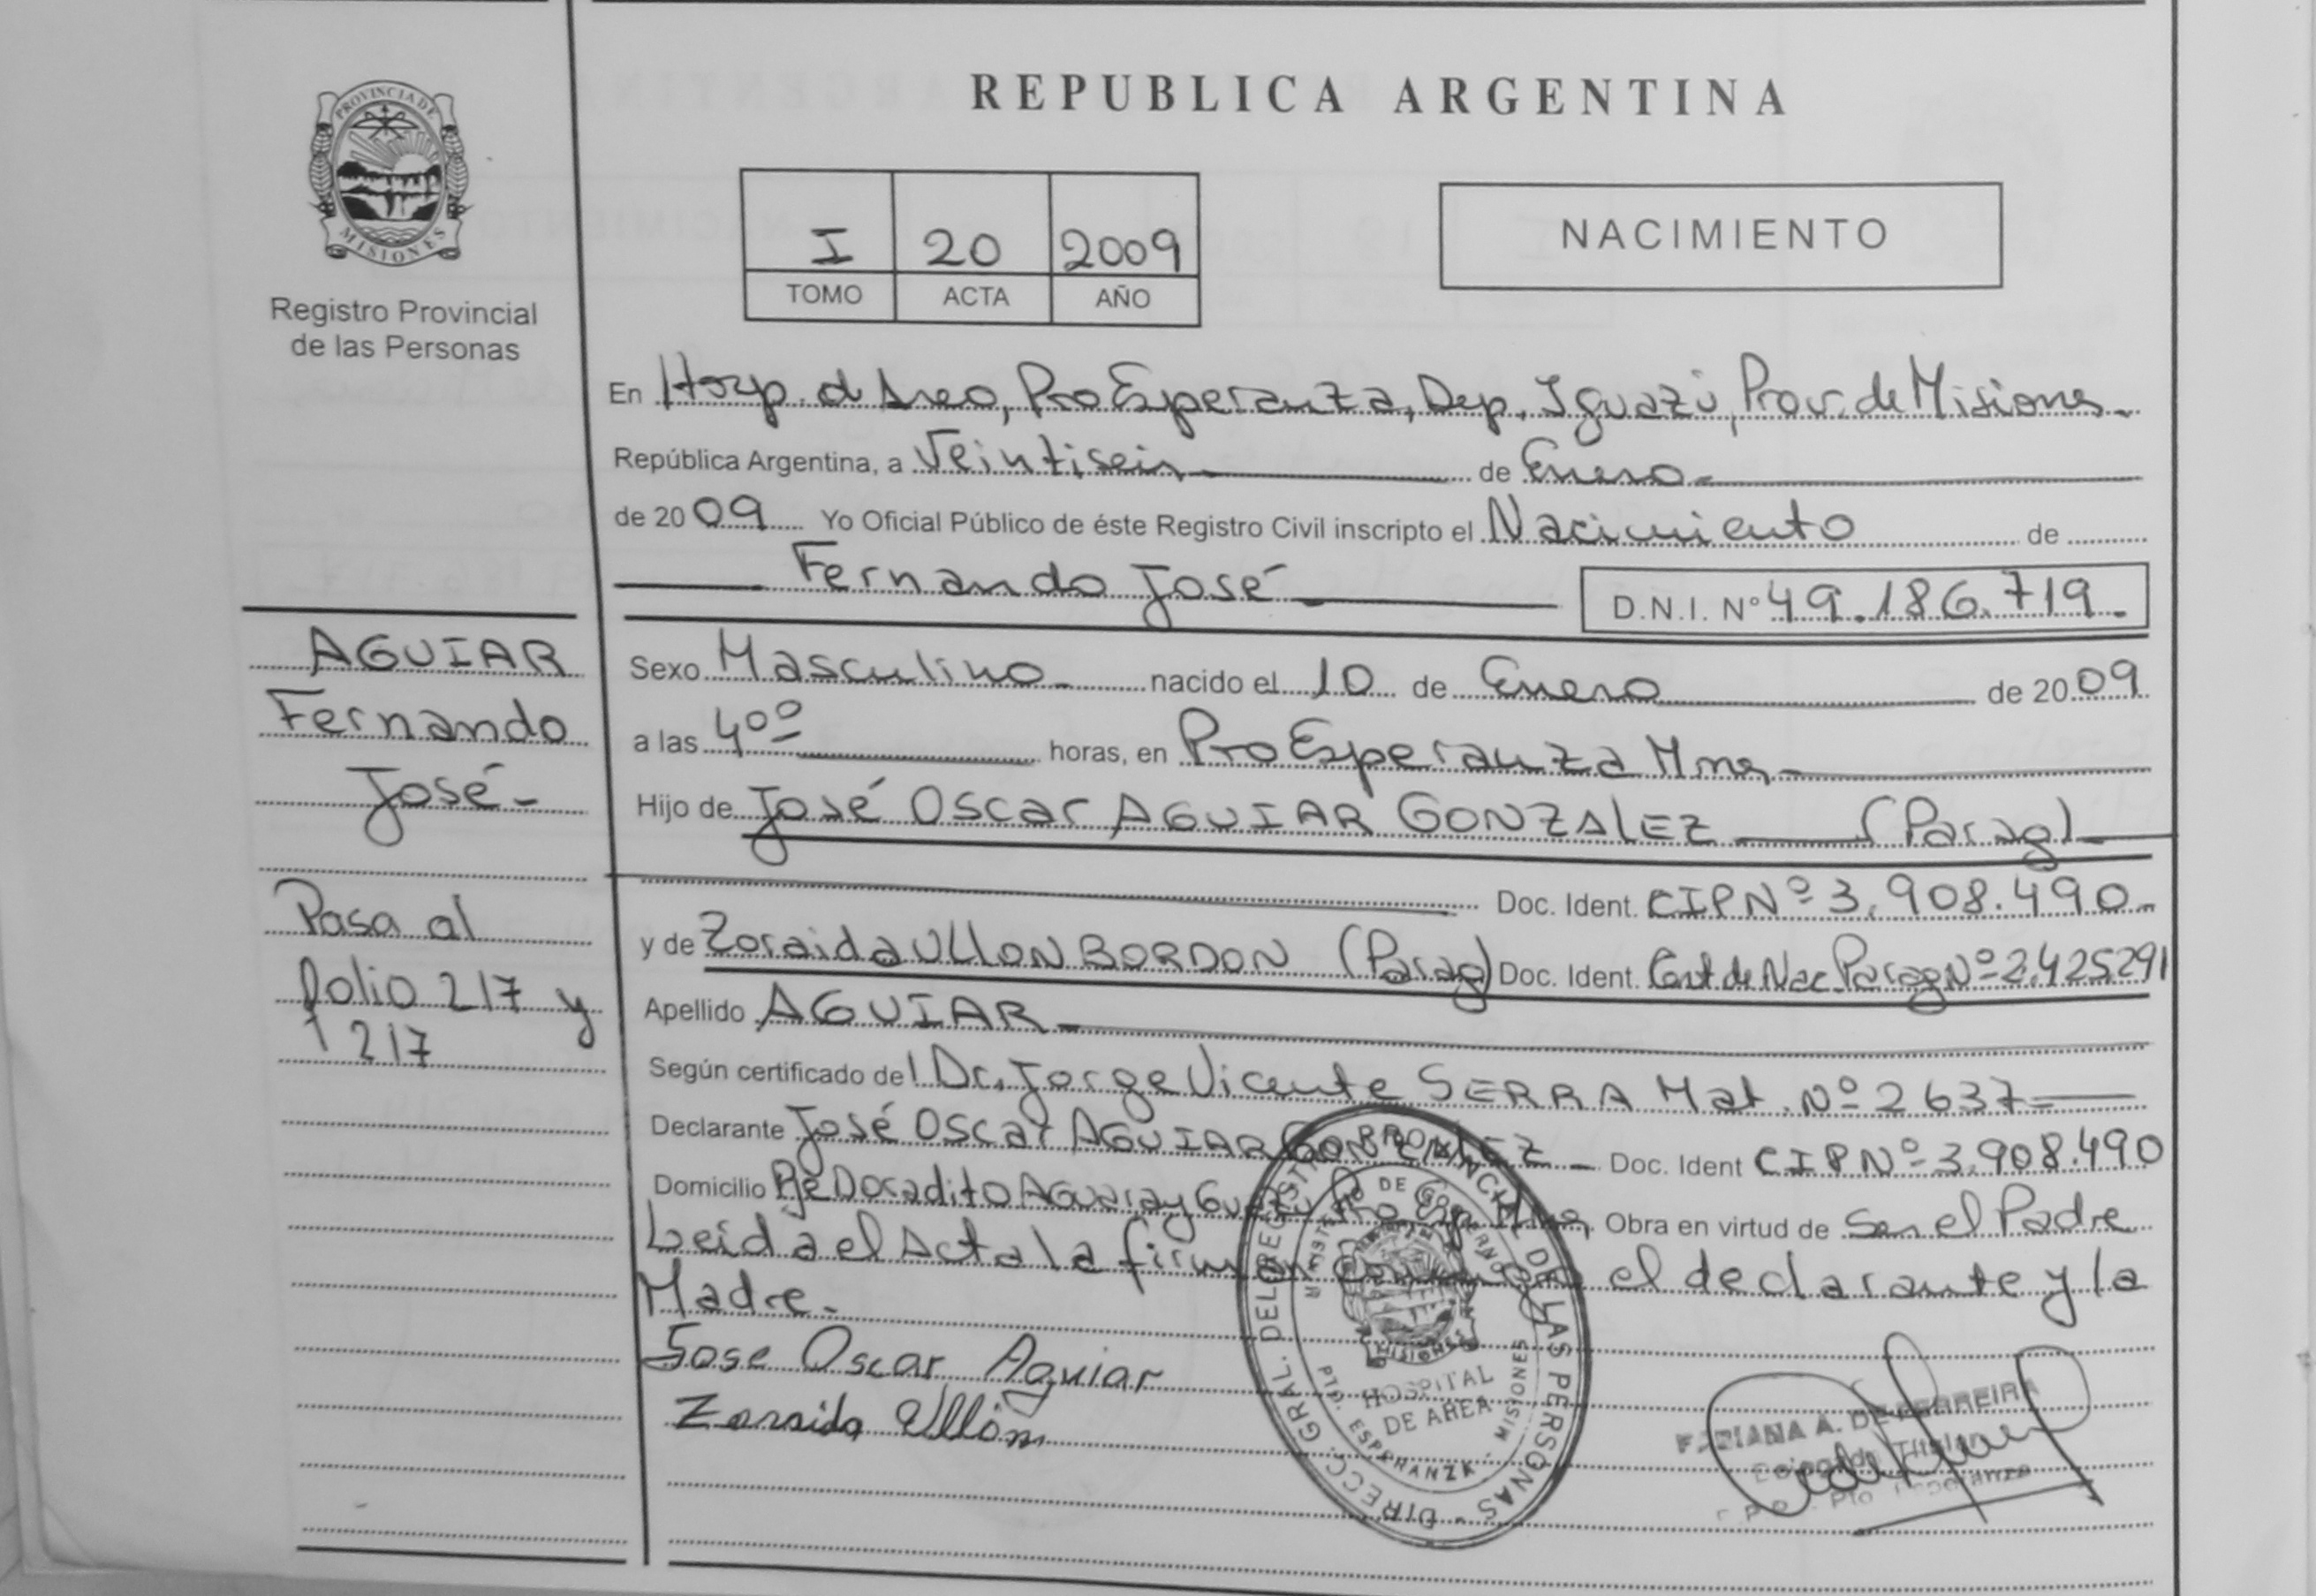 PROVINCIA DE
MISIONES
Registro Provincial
de las Personas
REPUBLICA ARGENTINA
I 20 2009
TOMO ACTA AÑO
NACIMIENTO
En Hosp. d Area, Pto Esperanza, Dep. Iguazú, Prov. de Misiones
República Argentina, a Veintiseis de Enero
de 2009 Yo Oficial Público de éste Registro Civil inscripto el Nacimiento de
Fernando José D.N.I. Nº 49.186.719.
Sexo Masculino nacido el 10 de Enero de 2009
a las 4ºº horas, en Pto Esperanza Mnes
Hijo de José Oscar AGUIAR GONZALEZ (Parag)
Doc. Ident. CIP Nº 3.908.490
y de Zoraida ULLON BORDON (Parag) Doc. Ident. Cert de Nac. Parag Nº 2.425291
Apellido AGUIAR
Según certificado del Dr. Jorge Vicente SERRA Mat. Nº 2637
Declarante José Oscar AGUIAR GONZALEZ Doc. Ident CIP Nº 3.908.490
Domicilio Pje Doradito Aguaray Guazú Pto Esp. Mnes Obra en virtud de Ser el Padre
Leida el Acta la firman el declarante y la
Madre.
Jose Oscar Aguiar
Zoraida Ullón
AGUIAR
Fernando
José
Pasa al
folio 217 y
1217
DIRECC. GRAL. DEL REGISTRO PROVINCIAL DE LAS PERSONAS
MINISTERIO DE GOBIERNO
MISIONES
HOSPITAL
DE AREA
PTO. ESPERANZA - MISIONES
FABIANA A. DE FERREIRA
Delegada Titular
Pto Esperanza